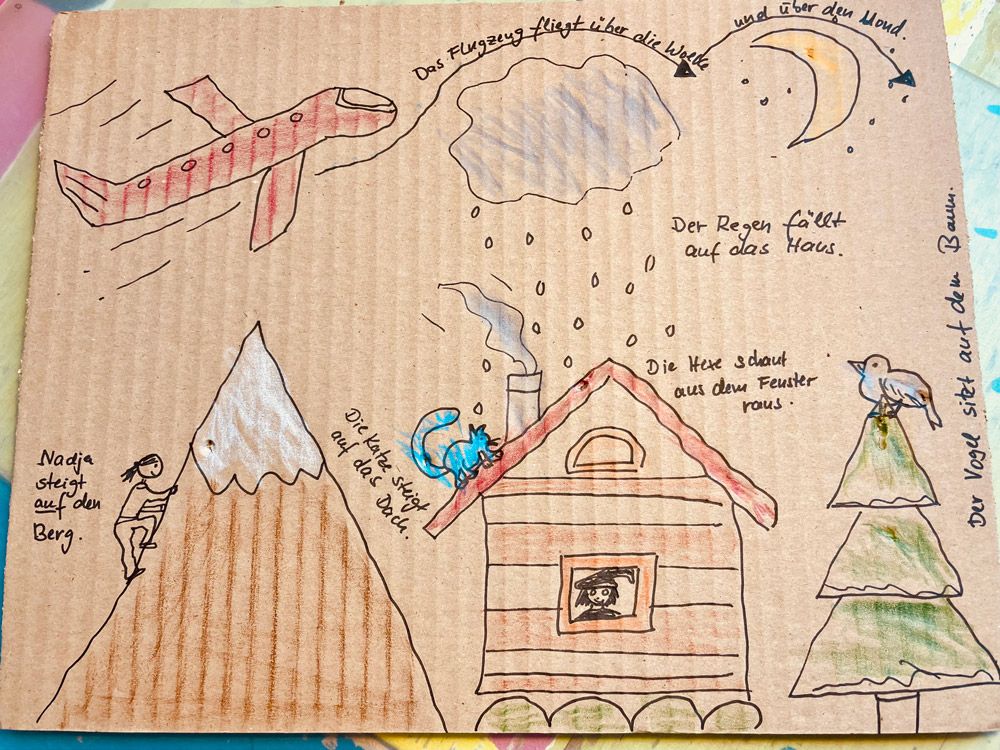 Das Flugzeug fliegt über die Wolke
und über den Mond.
Der Regen fällt
auf das Haus.
Die Hexe schaut
aus dem Fenster
raus.
Die Katze steigt
auf das Dach.
Nadja
steigt
auf den
Berg.
Der Vogel sitzt auf dem Baum.